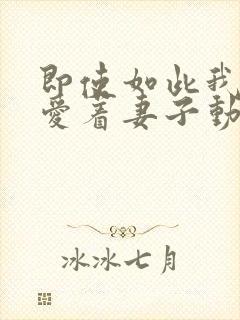 即使如此我
爱着妻子动
冰冰七月